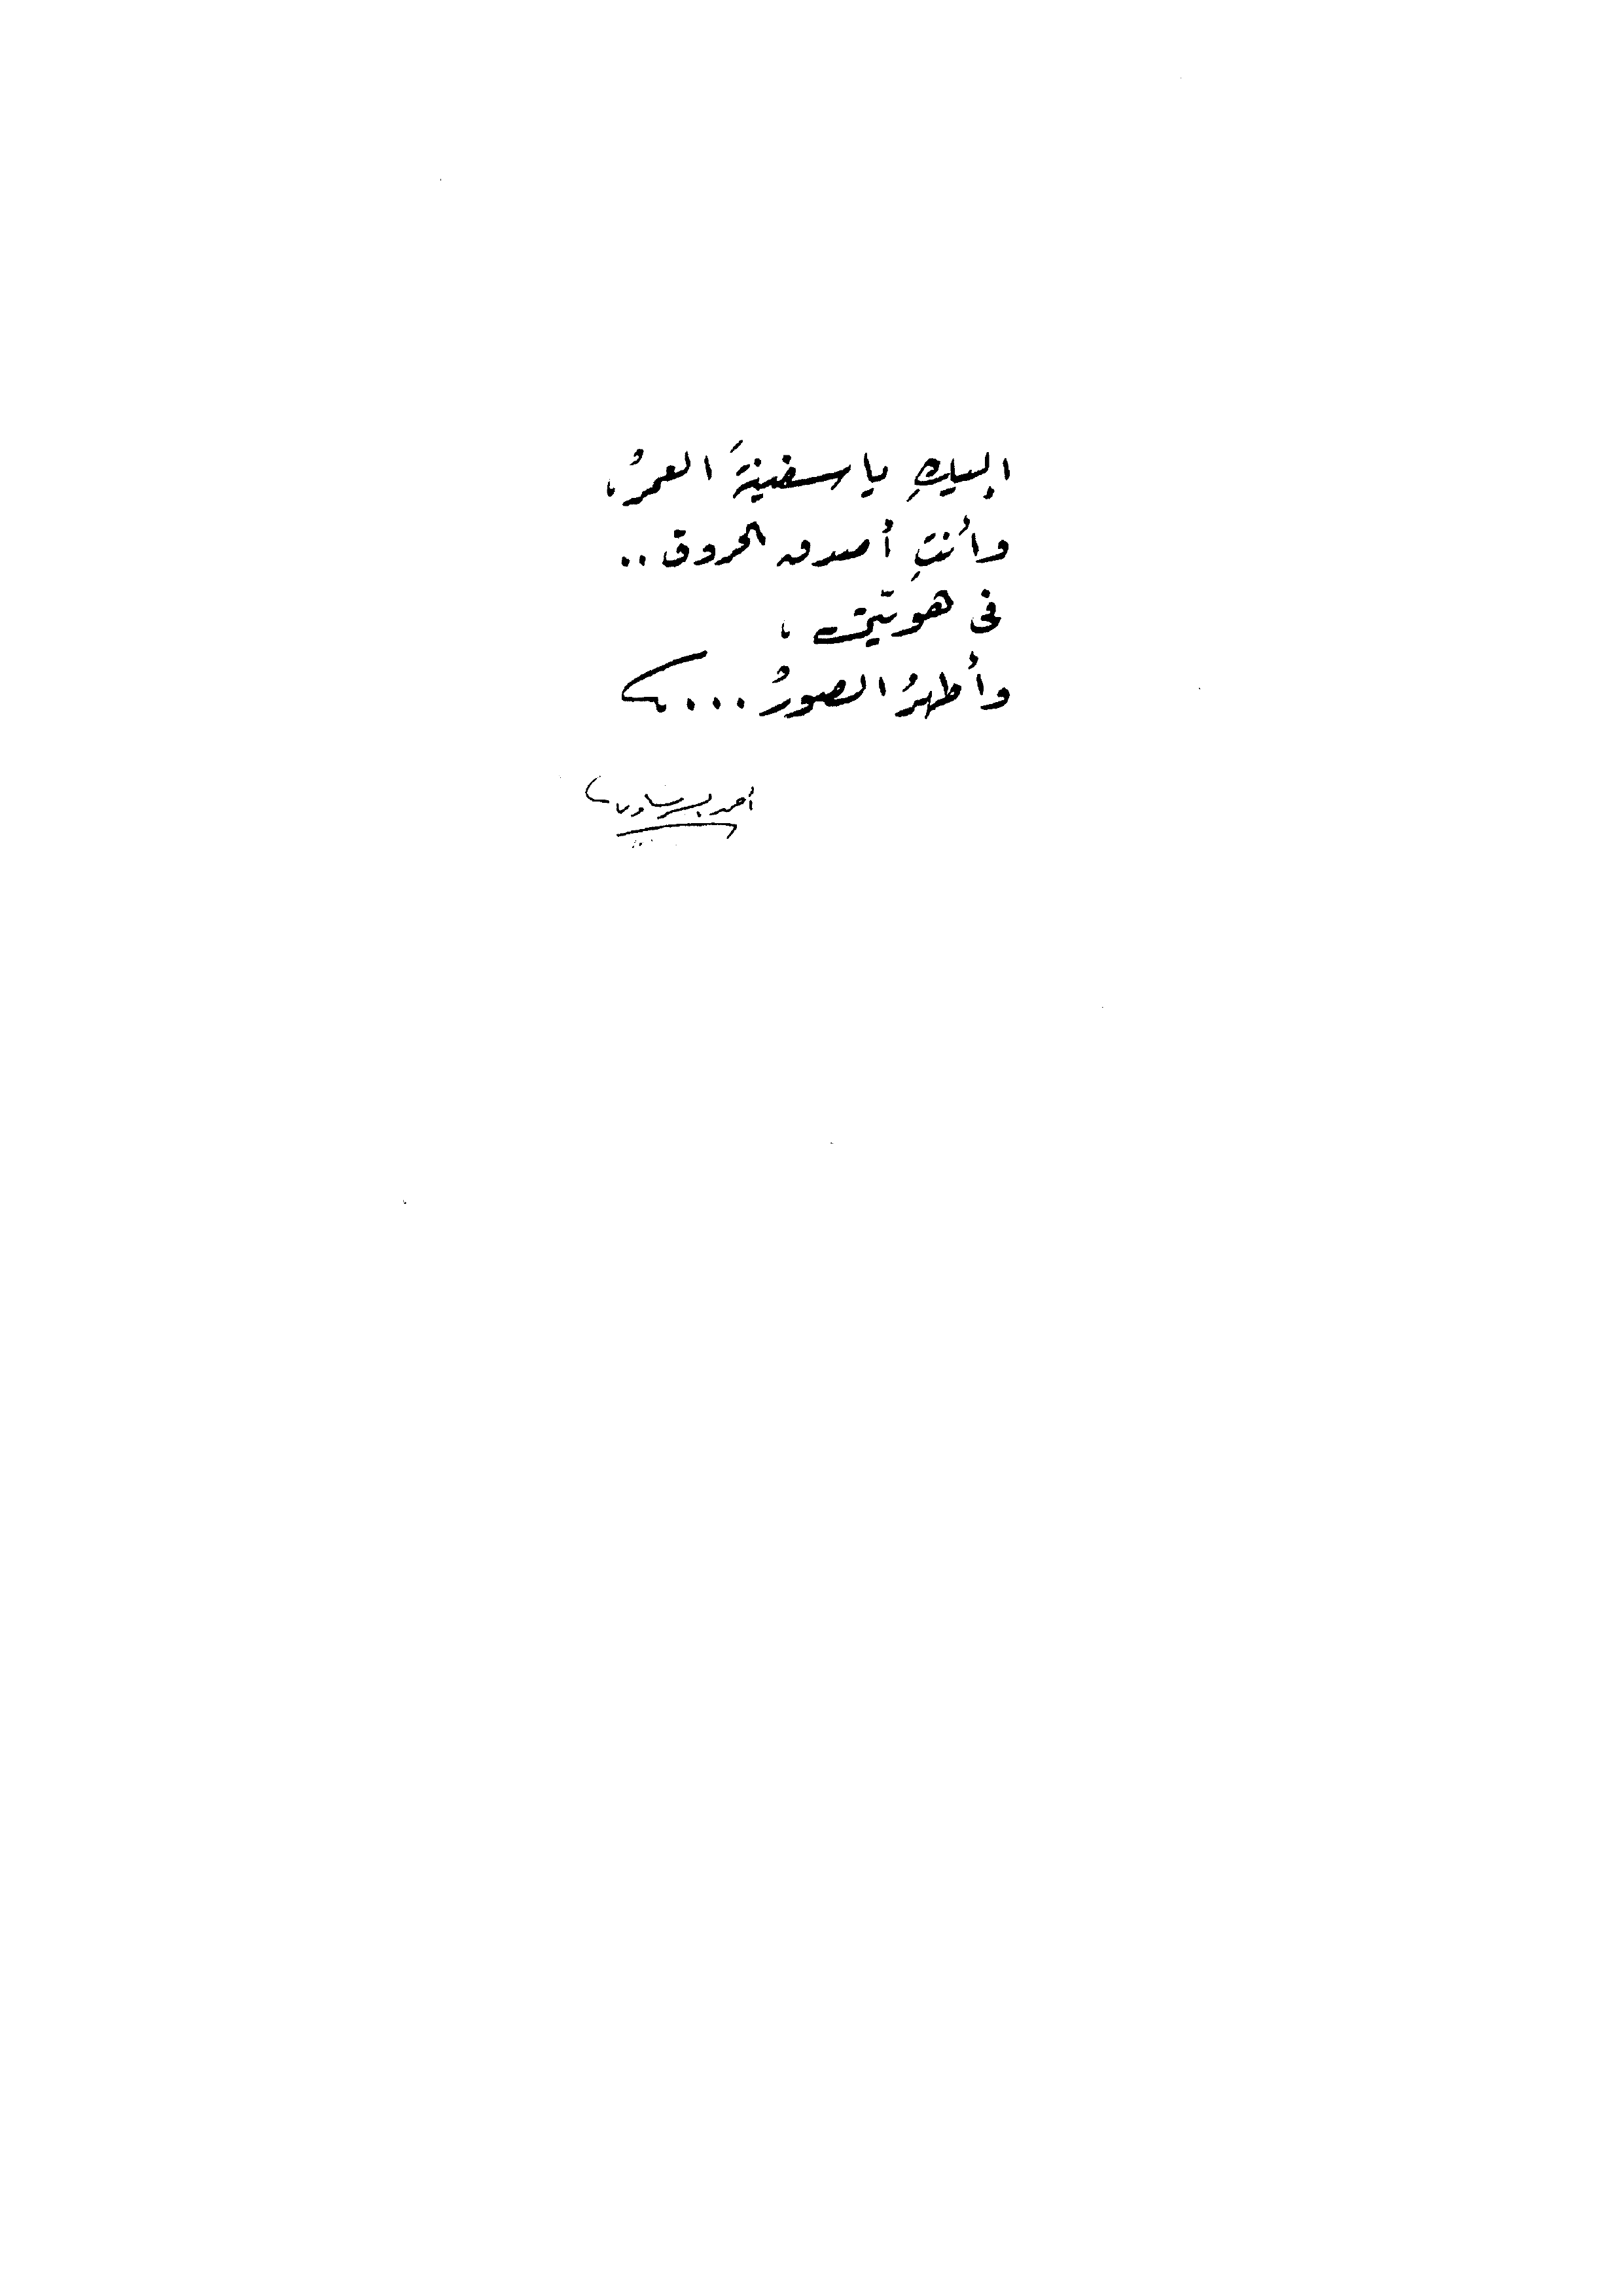 إليكِ يا سفينةَ العمرْ،
وأنتِ أصدق الحروق..
في هويّتي،
وأطهرُ الصورْ...
أحمد